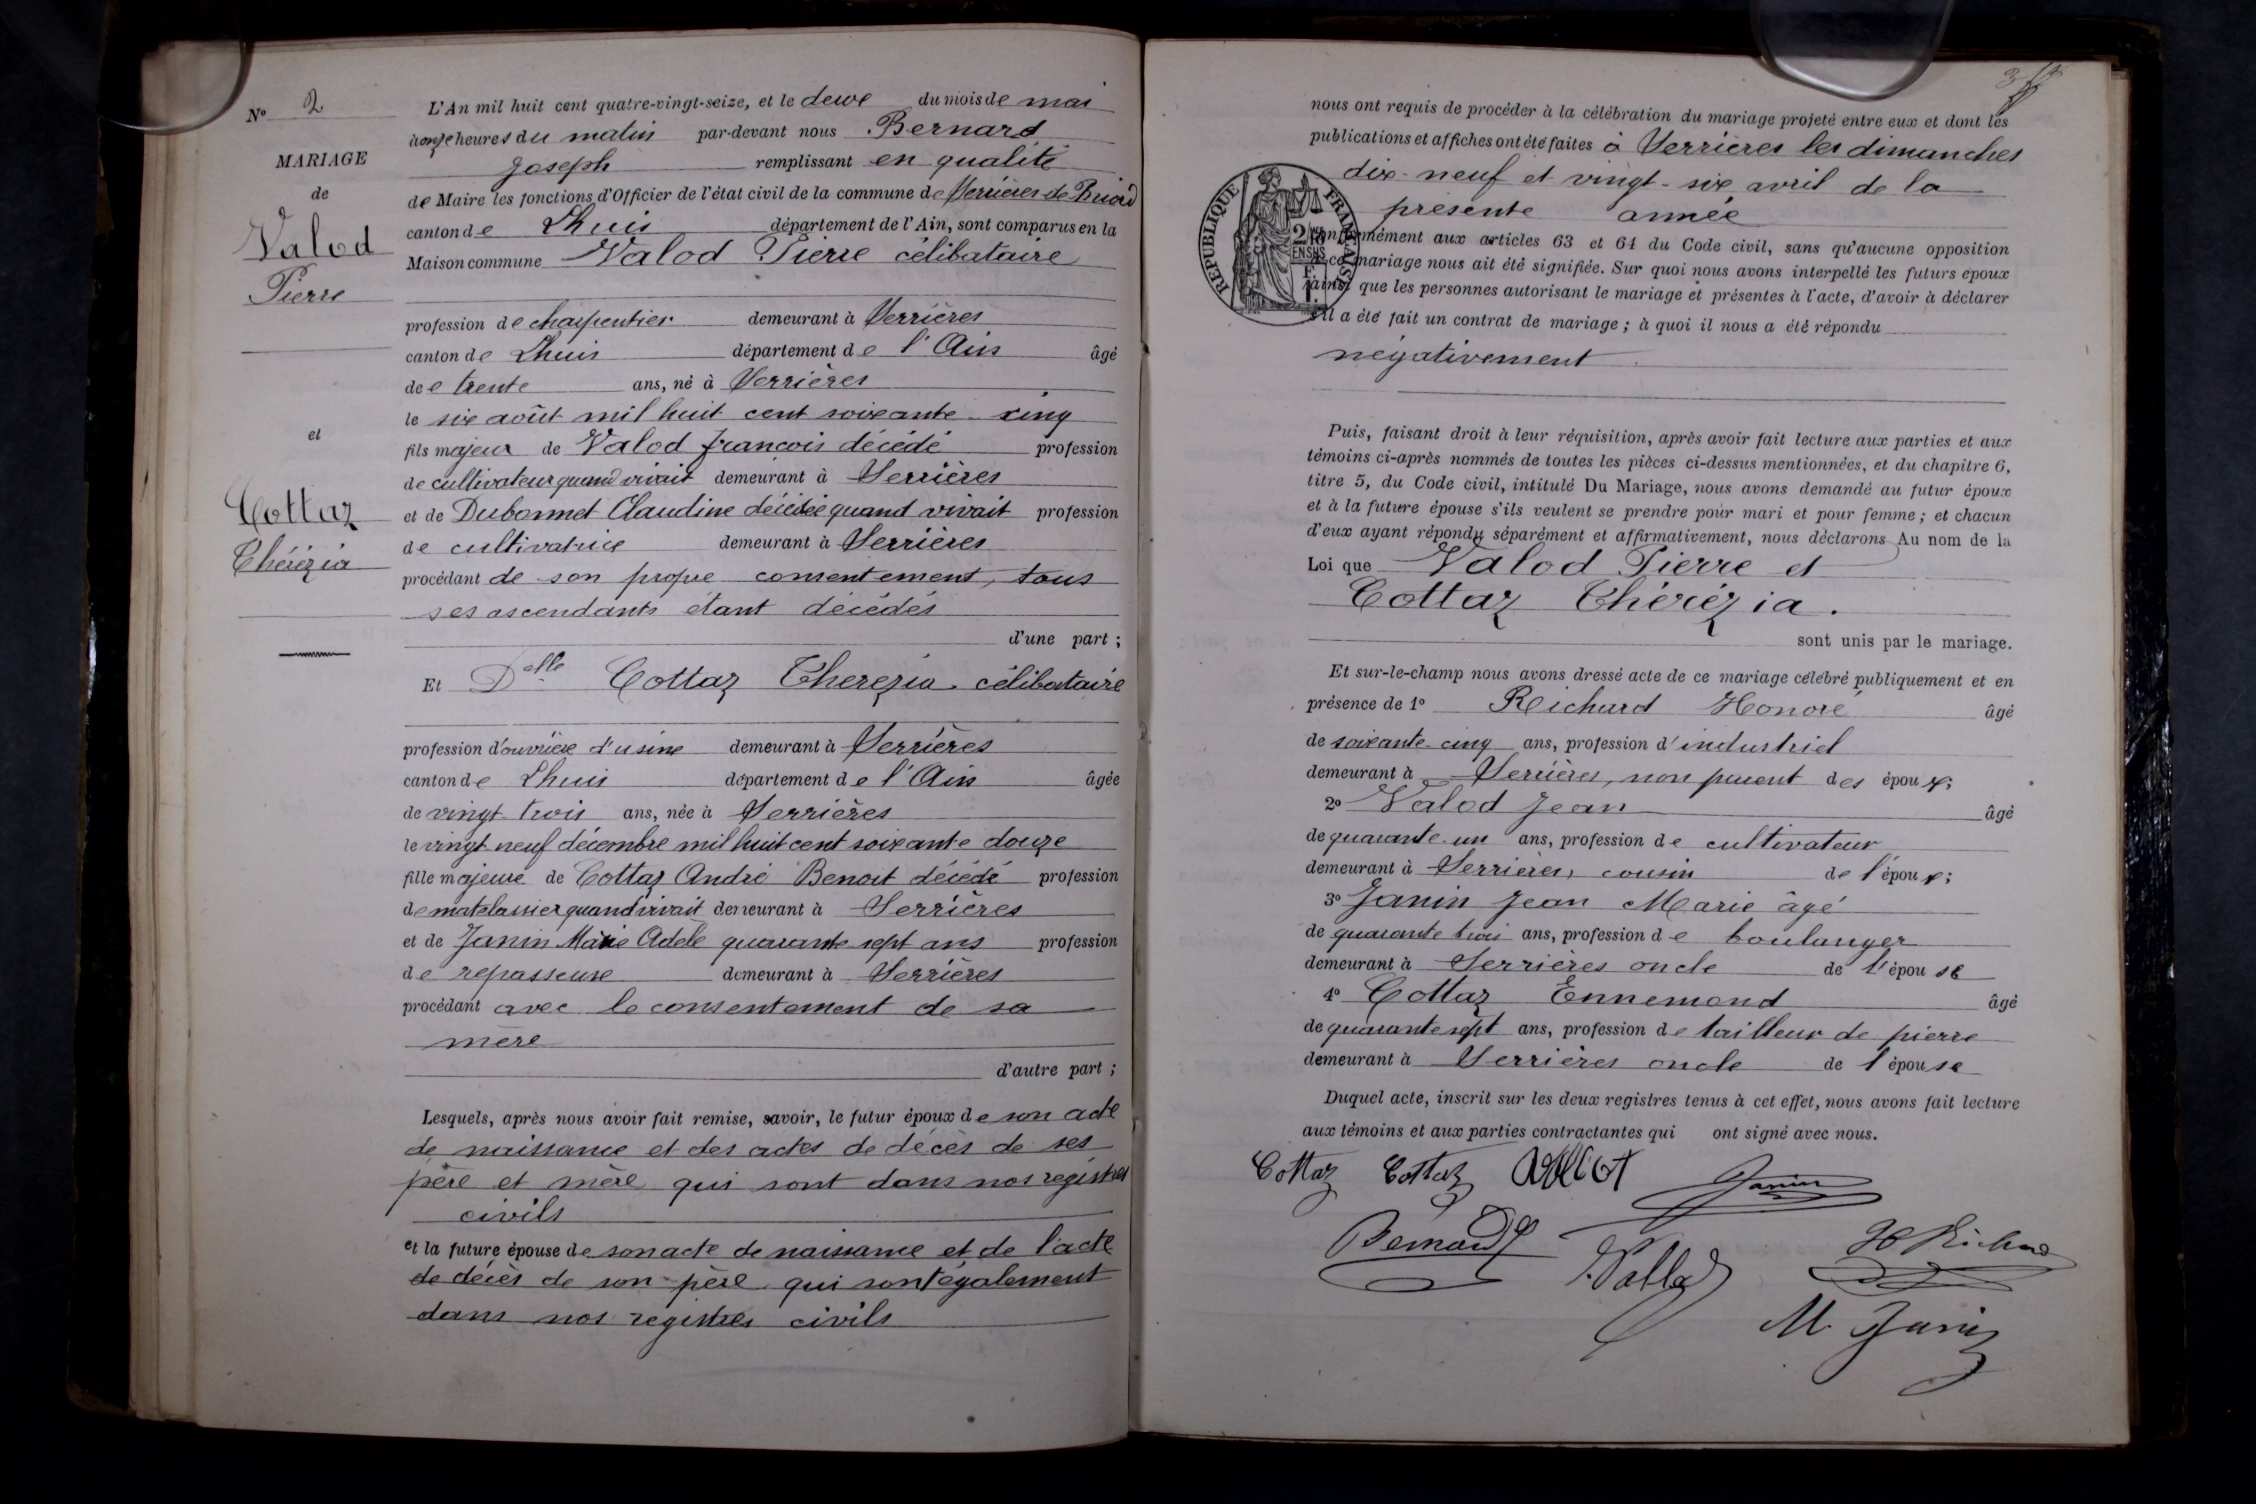 N° 2
MARIAGE
de
Valod
Pierre
et
Cottaz
Thérézia
L'An mil huit cent quatre-vingt-seize, et le deux du mois de mai
à onze heures du matin par-devant nous Bernard
Joseph remplissant en qualité
de Maire les fonctions d'Officier de l'état civil de la commune de Serrières de Briord
canton de Lhuis département de l'Ain, sont comparus en la
Maison commune Valod Pierre célibataire
profession de charpentier demeurant à Serrières
canton de Lhuis département de l'Ain âgé
de trente ans, né à Serrières
le six août mil huit cent soixante cinq
fils majeur de Valod françois décédé profession
de cultivateur quand vivait demeurant à Serrières
et de Dubonnet Claudine décédée quand vivait profession
de cultivatrice demeurant à Serrières
procédant de son propre consentement, tous
ses ascendants étant décédés
d'une part ;
Et Delle Cottaz Therezia célibataire
profession d'ouvrière d'usine demeurant à Serrières
canton de Lhuis département de l'Ain âgée
de vingt trois ans, née à Serrières
le vingt neuf décembre mil huit cent soixante douze
fille majeure de Cottaz André Benoit décédé profession
de matelassier quand vivait demeurant à Serrières
et de Janin Marie Adèle quarante sept ans profession
de repasseuse demeurant à Serrières
procédant avec le consentement de sa
mère
d'autre part ;
Lesquels, après nous avoir fait remise, savoir, le futur époux de son acte
de naissance et des actes de décès de ses
père et mère qui sont dans nos registres
civils
et la future épouse de son acte de naissance et de l'acte
de décès de son père qui sont également
dans nos registres civils
nous ont requis de procéder à la célébration du mariage projeté entre eux et dont les
publications et affiches ont été faites à Serrières les dimanches
dix-neuf et vingt-six avril de la
présente année
REPUBLIQUE FRANÇAISE
conformément aux articles 63 et 64 du Code civil, sans qu'aucune opposition
à ce mariage nous ait été signifiée. Sur quoi nous avons interpellé les futurs époux
ainsi que les personnes autorisant le mariage et présentes à l'acte, d'avoir à déclarer
s'il a été fait un contrat de mariage ; à quoi il nous a été répondu
négativement
Puis, faisant droit à leur réquisition, après avoir fait lecture aux parties et aux
témoins ci-après nommés de toutes les pièces ci-dessus mentionnées, et du chapitre 6,
titre 5, du Code civil, intitulé Du Mariage, nous avons demandé au futur époux
et à la future épouse s'ils veulent se prendre pour mari et pour femme ; et chacun
d'eux ayant répondu séparément et affirmativement, nous déclarons Au nom de la
Loi que Valod Pierre et
Cottaz Thérézia.
sont unis par le mariage.
Et sur-le-champ nous avons dressé acte de ce mariage célébré publiquement et en
présence de 1° Reichard Honoré âgé
de soixante cinq ans, profession d'industriel
demeurant à Serrières, non parent des époux;
2° Valod Jean âgé
de quarante un ans, profession de cultivateur
demeurant à Serrières, cousin de l'époux;
3° Janin Jean Marie âgé
de quarante trois ans, profession de boulanger
demeurant à Serrières oncle de l'épouse
4° Cottaz Ennemond âgé
de quarante sept ans, profession de tailleur de pierre
demeurant à Serrières oncle de l'épouse
Duquel acte, inscrit sur les deux registres tenus à cet effet, nous avons fait lecture
aux témoins et aux parties contractantes qui ont signé avec nous.
Cottaz Cottaz Janin
Bernard J H Richard
M Janin